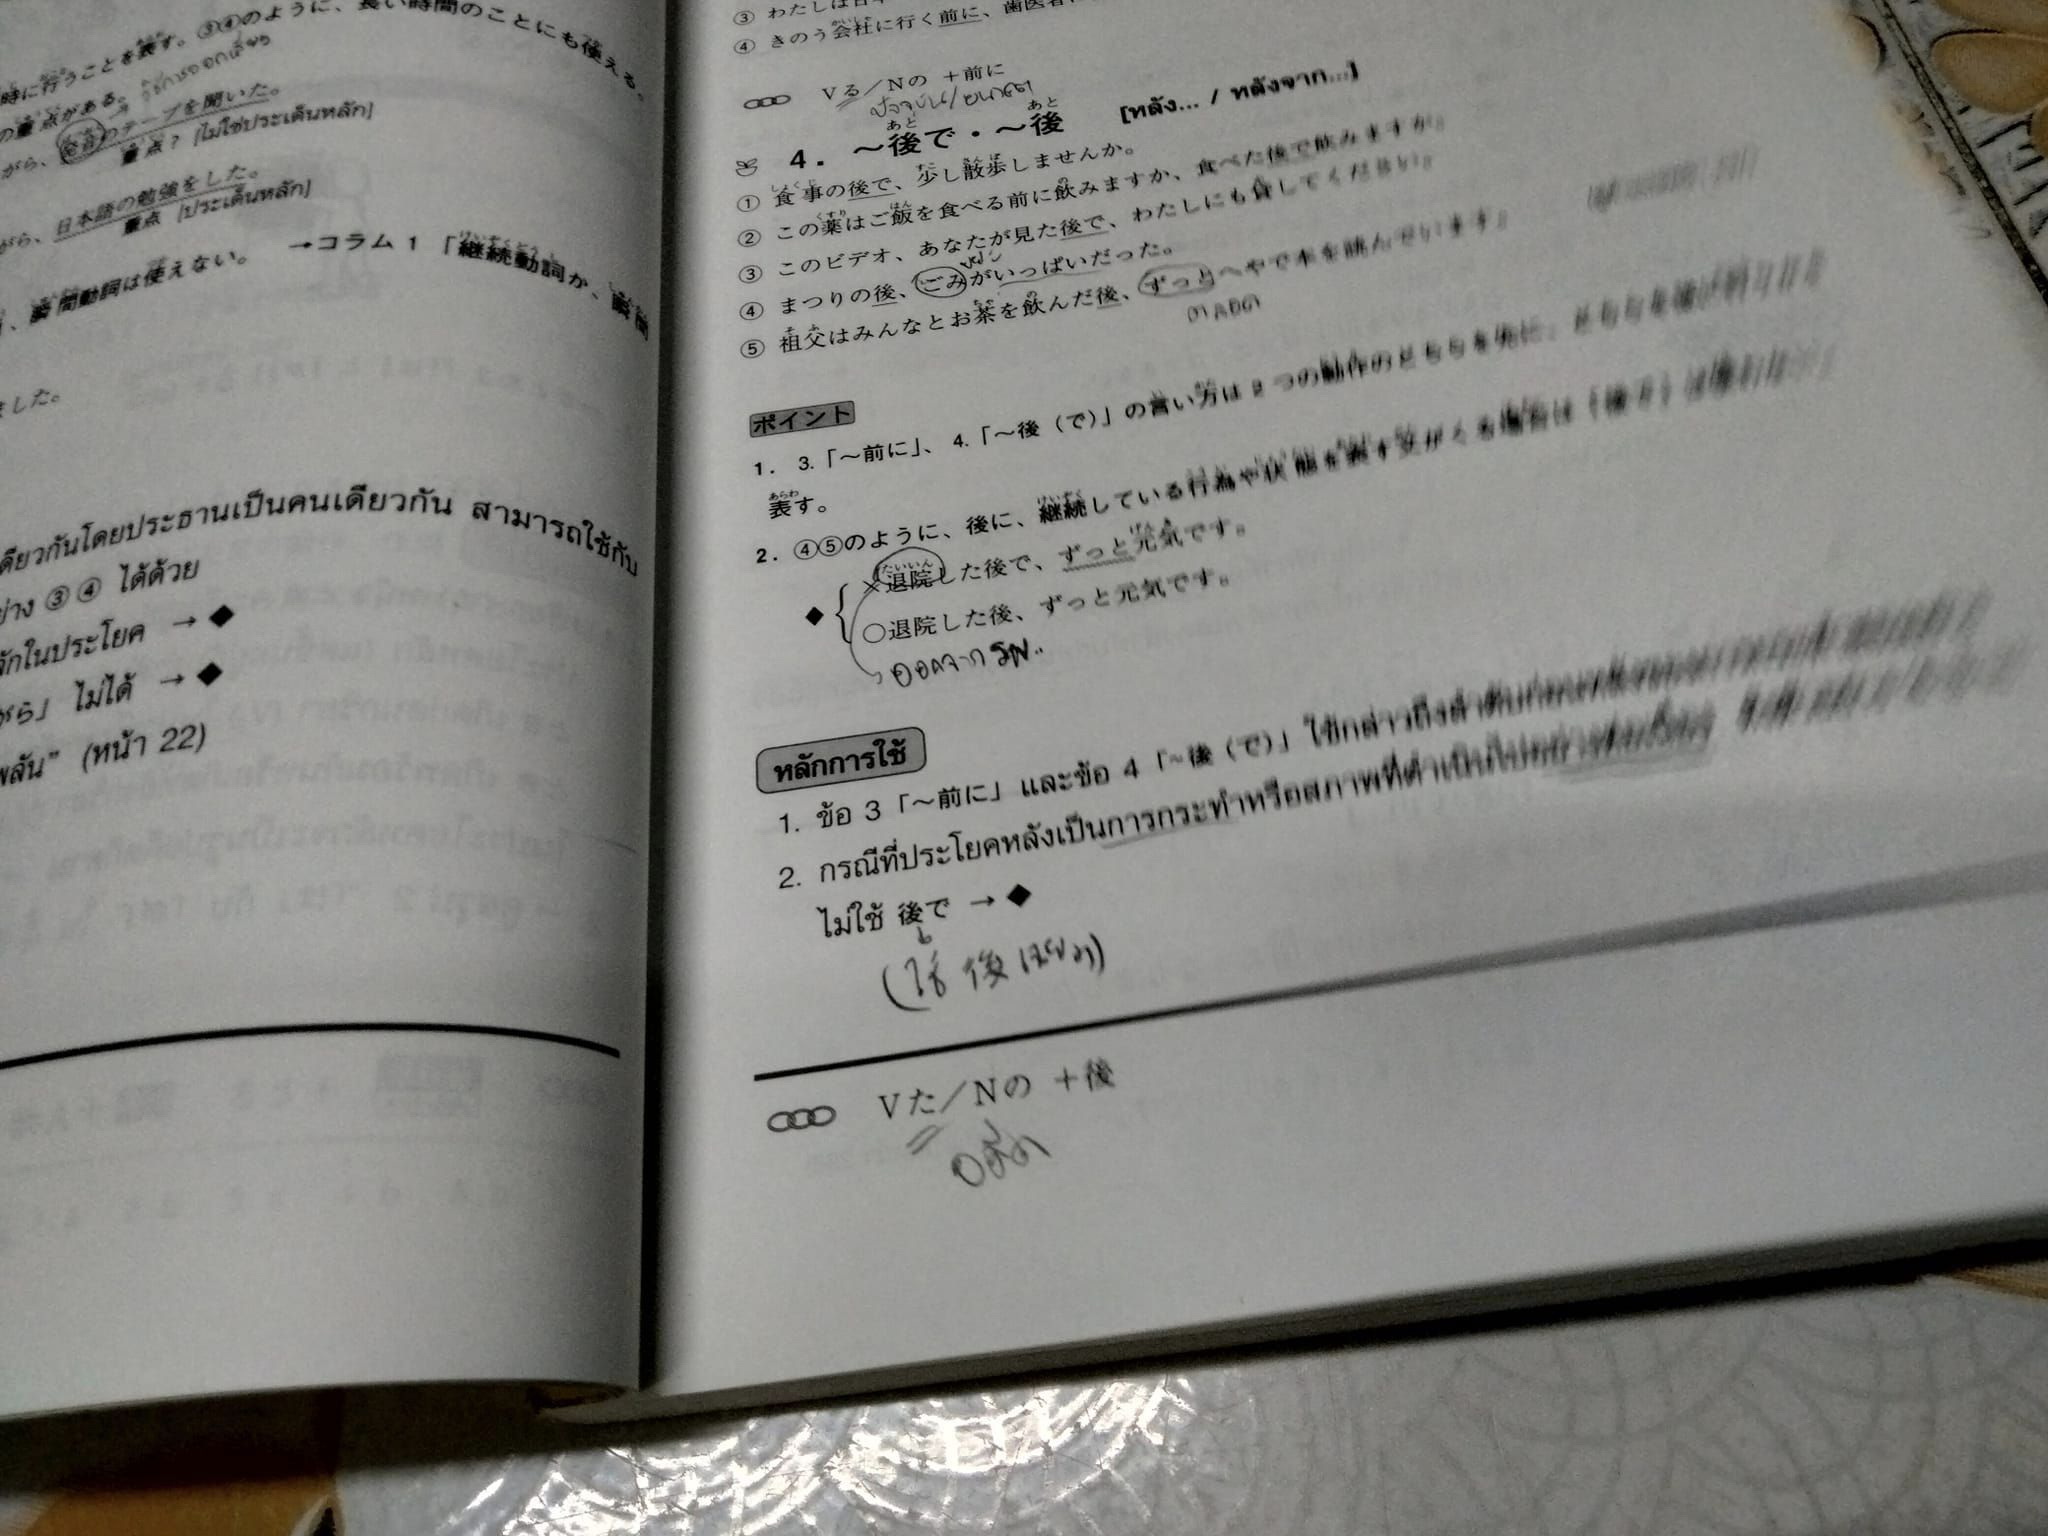 時に行うことを表す。③④のように、長い時間のことにも使える。
の重点がある。
がら、発音のテープを聞いた。
重点？ [ไม่ใช่ประเด็นหลัก]
がら、日本語の勉強をした。
重点 [ประเด็นหลัก]
、瞬間動詞は使えない。 →コラム 1 「継続動詞か、瞬間
ました。
ดียวกันโดยประธานเป็นคนเดียวกัน สามารถใช้กับ
ย่าง ③ ④ ได้ด้วย
ลักในประโยค → ◆
がら」 ไม่ได้ → ◆
พลัน” (หน้า 22)
③ わたしは日本
④ きのう会社に行く前に、歯医者に
Vる／Nの ＋前に
ปัจจุบัน/อนาคต
4. ～後で・～後 [หลัง... / หลังจาก...]
① 食事の後で、少し散歩しませんか。
② この薬はご飯を食べる前に飲みますか、食べた後で飲みますか。
③ このビデオ、あなたが見た後で、わたしにも貸してください。
④ まつりの後、ごみがいっぱいだった。
⑤ 祖父はみんなとお茶を飲んだ後、ずっとへやで本を読んでいます。
ตลอด
ポイント
1. 3.「～前に」、4.「～後（で）」の言い方は2つの動作のどちらを先に、どちらを後に
表す。
2. ④⑤のように、後に、継続している行為や状態を表す文がくる場合は「後で」は
◆ ×退院した後で、ずっと元気です。
○退院した後、ずっと元気です。
ออกจาก รพ..
หลักการใช้
1. ข้อ 3「～前に」และข้อ 4「～後（で）」ใช้กล่าวถึงลำดับ
2. กรณีที่ประโยคหลังเป็นการกระทำหรือสภาพที่ดำเนินไปอย่างต่อเนื่อง
ไม่ใช้ 後で → ◆
(ใช้ 後 เฉยๆ)
Vた／Nの ＋後
อดีต